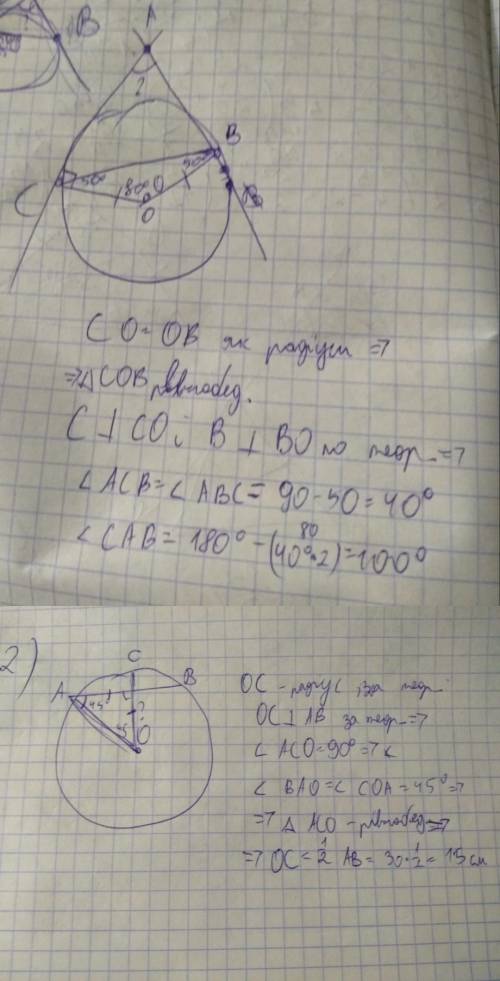 B
A
?
B
50°
C
50°
80°
O
CO = OB як радіуси =>
=> △COB рівнобед.
C ⊥ CO і B ⊥ BO по теор. =>
∠ACB = ∠ABC = 90 - 50 = 40°
80
∠CAB = 180° - (40°·2) = 100°
2)
C
A
B
45°
?
45
O
OC - радіус і за теор.
OC ⊥ AB за теор. =>
∠ACO = 90° =>
∠BAO = ∠COA = 45° =>
=> △ACO - рівнобед. =>
=> OC = 1/2 AB = 30·1/2 = 15 см